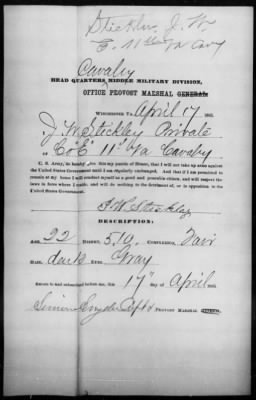 Stickley, J. W.
E. 11th Va Cav
Cavalry
HEAD QUARTERS MIDDLE MILITARY DIVISION,
OFFICE PROVOST MARSHAL GENERAL
WINCHESTER VA April 17 1865.
J. W. Stickley Private
of Co "E" 11" Va Cavalry
C. S. Army, do hereby give this my parole of Honor, that I will not take up arms against
the United States Government until I am regularly exchanged. And that if I am permitted
to remain at my home I will conduct myself as a good and peaceable citizen, and will respect the
laws in force where I reside, and will do nothing to the detriment of, or in opposition to
the United States Government.
J. W. Stickley
DESCRIPTION:
AGE, 22 HEIGHT, 5.10 COMPLEXION, Fair
HAIR, dark EYES, Gray
SWORN to and subscribed before me, this 17" day of April 1865.
Simon Snyder Capt &
PROVOST MARSHAL GENERAL